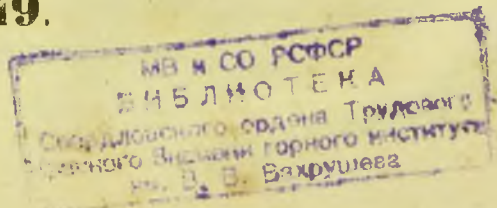 19.
МВ и СО РСФСР
БИБЛИОТЕКА
Свердловского ордена Трудового
Красного Знамени горного института
им. В. В. Вахрушева